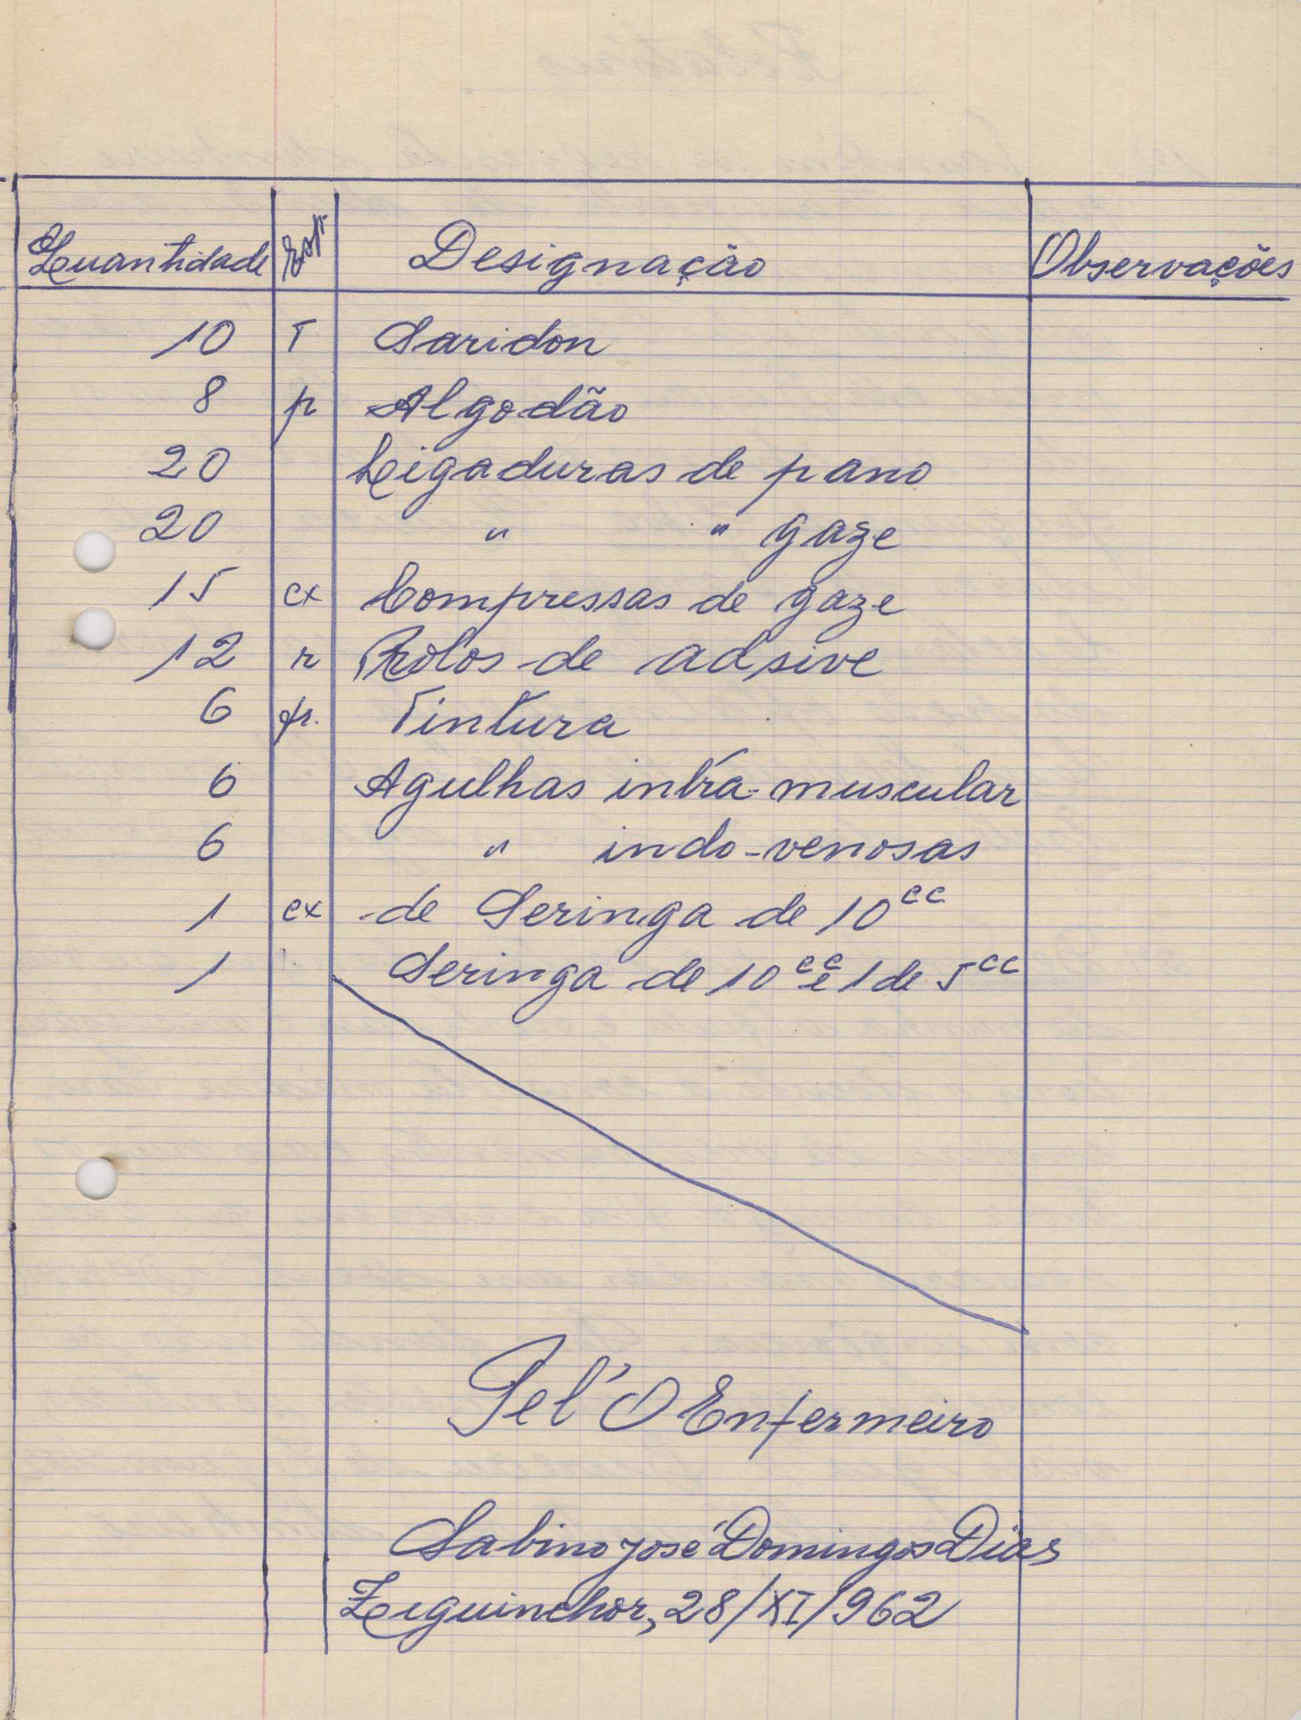 Quantidade Esp. Designação Observações
10 T Saridon
8 p Algodão
20 Ligaduras de pano
20 " " gaze
15 cx Compressas de gaze
12 r Rolos de adsive
6 fr. Tintura
6 Agulhas intra-muscular
6 " indo-venosas
1 cx de Seringa de 10cc
1 Seringa de 10cc e 1 de 5cc
Pel'O Enfermeiro
Sabino José Domingos Dias
Ziguinchor, 28/XI/962